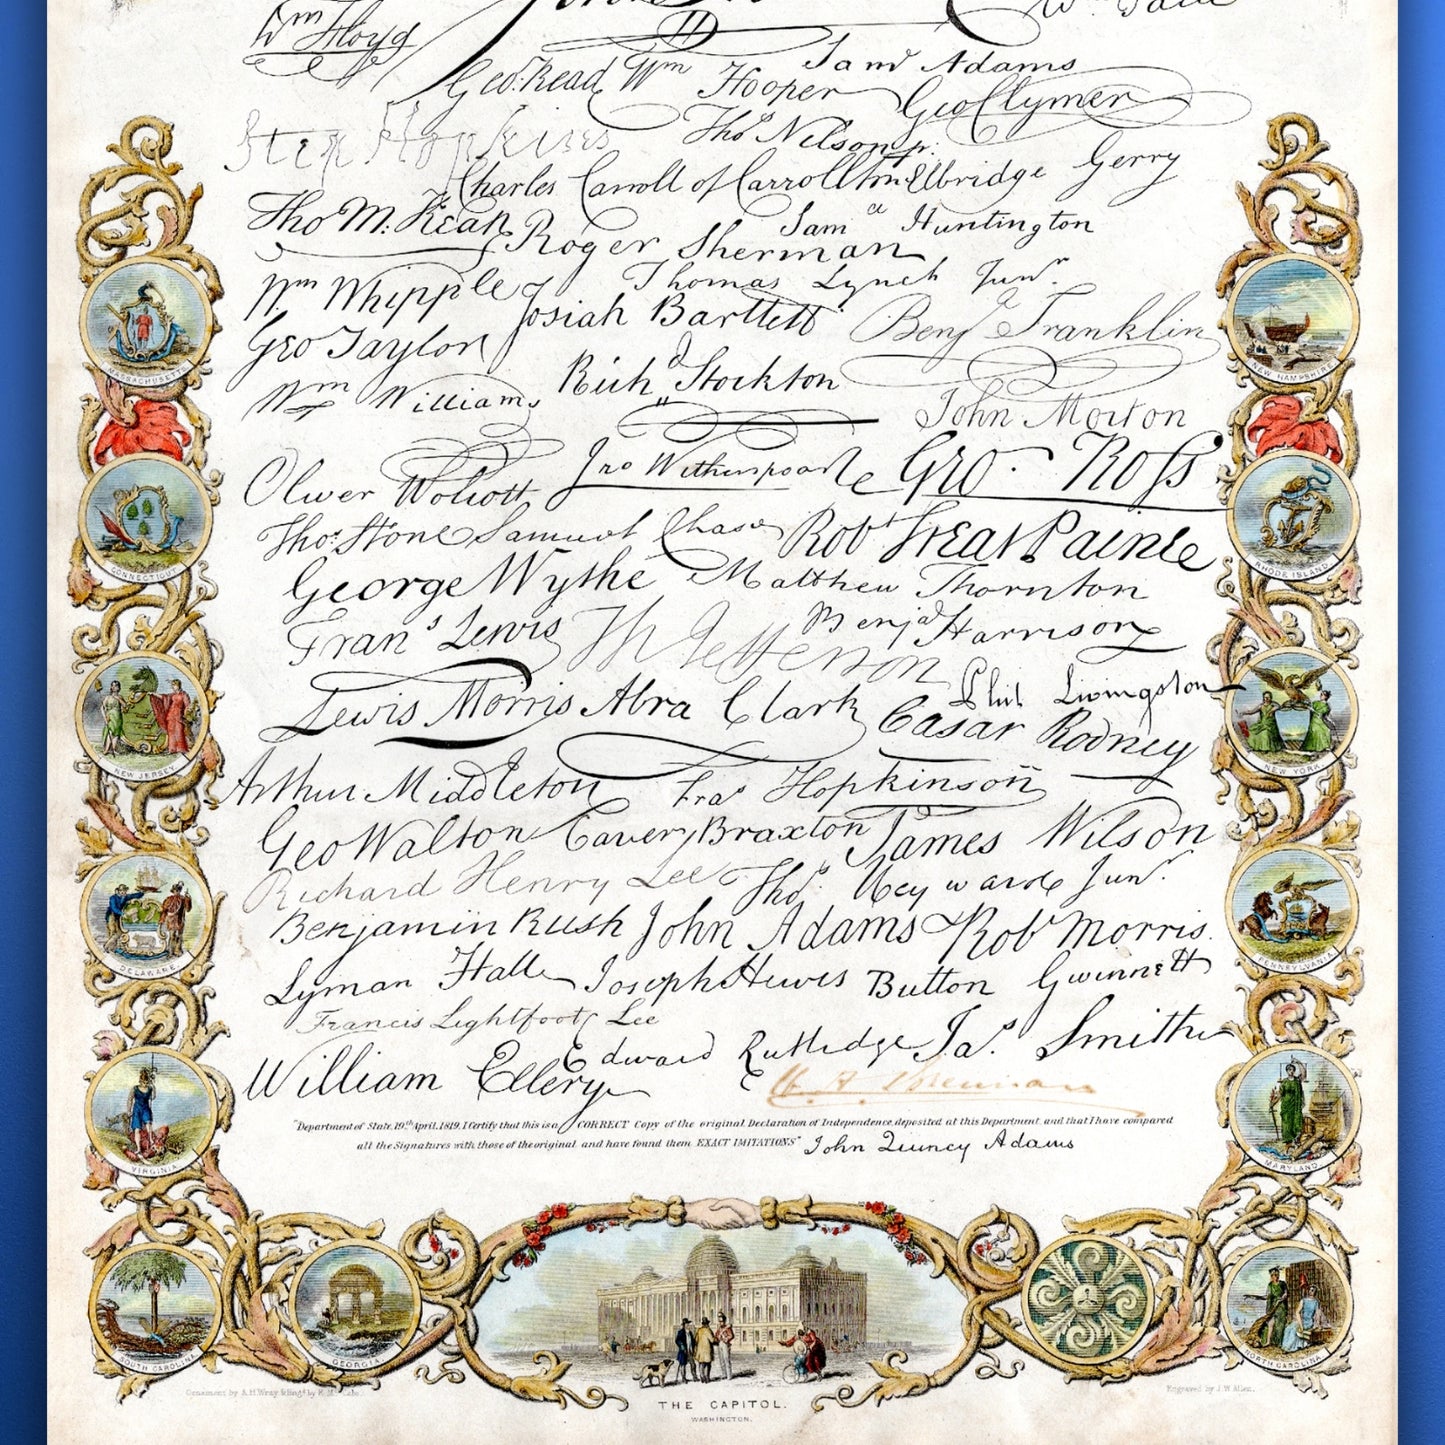 Wm Floyd
Wm Paca
Geo. Read Wm Hooper Saml Adams
Geo Clymer
Step Hopkins
Thos Nelson jr.
Charles Carroll of Carrollton Elbridge Gerry
Tho M:Kean Roger Sherman Samel Huntington
Wm Whipple Thomas Lynch Junr.
Josiah Bartlett Benja Franklin
Geo Taylor
Richd Stockton
Wm Williams John Morton
Oliver Wolcott Jno Witherspoon Geo. Ross
Thos. Stone Samuel Chase Robt Treat Paine
George Wythe Matthew Thornton
Frans Lewis Th Jefferson Benja Harrison
Lewis Morris Abra Clark Phil Livingston
Casar Rodney
Arthur Middleton Fras Hopkinson
Geo Walton Carter Braxton James Wilson
Richard Henry Lee Thos. Heyward Junr.
Benjamin Rush John Adams Robt Morris.
Lyman Hall Joseph Hewes Button Gwinnett
Francis Lightfoot Lee
William Ellery Edward Rutledge Jas. Smith
"Department of State, 19th April, 1819. I Certify that this is a CORRECT Copy of the original Declaration of Independence, deposited at this Department and that I have compared
all the Signatures with those of the original and have found them EXACT IMITATIONS" John Quincy Adams
MASSACHUSETTS
NEW HAMPSHIRE
CONNECTICUT
RHODE ISLAND
NEW JERSEY
NEW YORK.
DELAWARE.
PENNSYLVANIA
VIRGINIA
MARYLAND
SOUTH CAROLINA
GEORGIA
NORTH CAROLINA
Ornament by A.H. Wray
Engraved by J.W. Allen.
THE CAPITOL.
WASHINGTON.